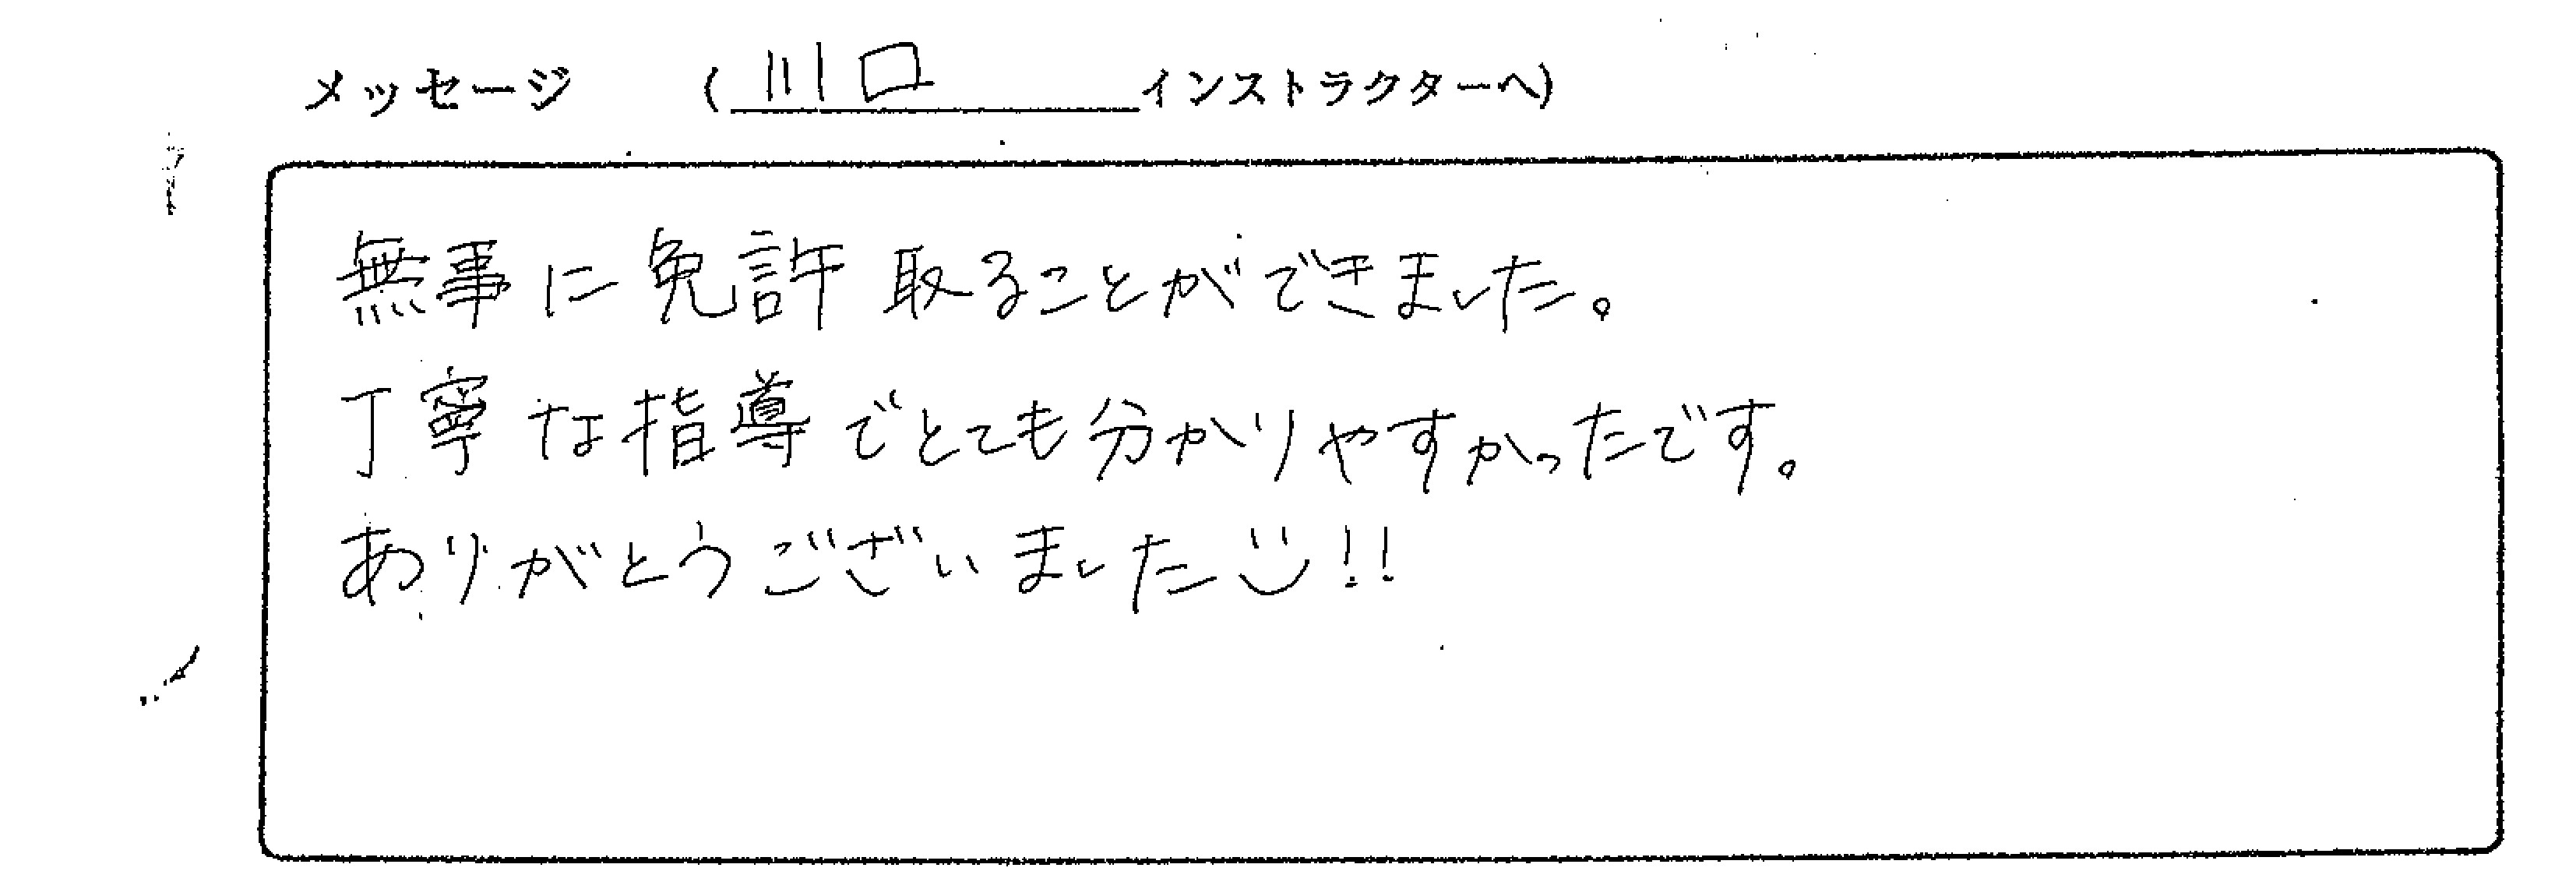 メッセージ （川口インストラクターへ）
無事に免許取ることができました。
丁寧な指導でとても分かりやすかったです。
ありがとうございました!!